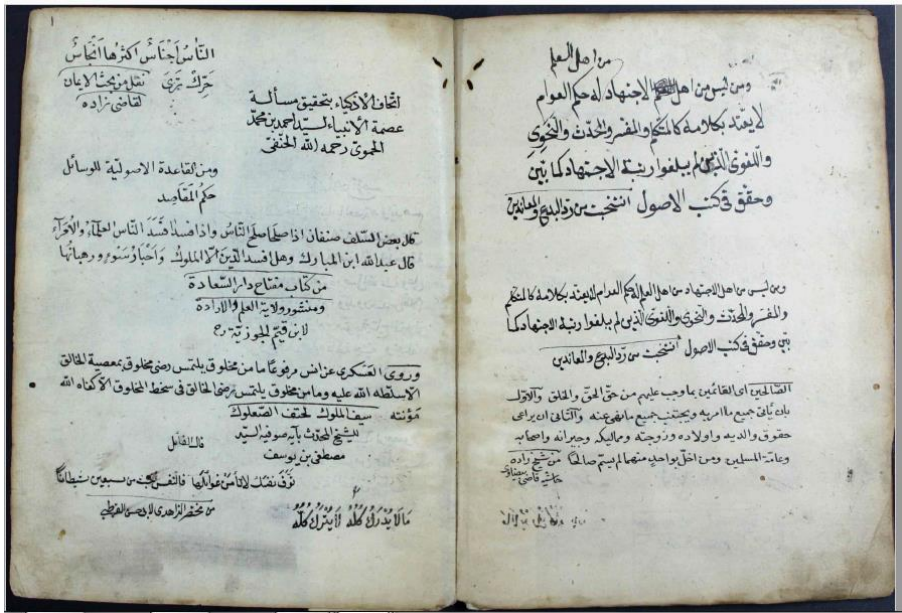 من اهل العلم
ومن ليس من اهل الاجتهاد له حكم العوام
لا يعتد بكلامه كالمتكلم والمفسر والمحدث والنحوى
واللغوى الذين لم يبلغوا رتبة الاجتهاد كما بين
وحقق فى كتب الاصول انتخبت من رد البدع والمعاندين
ومن ليس من اهل الاجتهاد من اهل العلم له حكم العوام لا يعتد بكلامه كالمتكلم
والمفسر والمحدث والنحوى واللغوى الذين لم يبلغوا رتبة الاجتهاد كما
بين وحقق فى كتب الاصول انتخبت من رد البدع والمعاندين
الصالحين اى القائمين بما وجب عليهم من حق الحق والخلق والاول
بان ياتى جميع ما امر به ويجتنب جميع ما نهى عنه والثانى ان يراعى
حقوق والديه واولاده وزوجته ومماليكه وجيرانه واصحابه
وعامة المسلمين ومن اخل بواحد منهما لم يسم صالحا من شيخ زاده
حاشية قاضى بيضاوى
١
الناس اجناس اكثرها انجاس
حرك ترى
نقل من بحث الايمان
لقاضى زاده
اتحاف الاذكياء بتحقيق مسألة
عصمة الانبياء لسيد احمد بن محمد
الحموى رحمه الله الحنفى
ومن القاعدة الاصولية للوسائل
حكم المقاصد
قال بعض السلف صنفان اذا صلحا صلح الناس واذا فسدا فسد الناس العلماء والامراء
قال عبد الله ابن المبارك وهل افسد الدين الا الملوك وَاَحبار سَوءٍ ورهبانها
من كتاب مفتاح دار السعادة
ومنشور ولاية العلم والارادة
لابن قيم الجوزية رح
وروى العسكرى عن انس مرفوعا ما من مخلوق يلتمس رضى مخلوق بمعصية الخالق
الا سلطه الله عليه وما من مخلوق يلتمس رضى الخالق فى سخط المخلوق الا كفاه الله
مؤنته سيف الملوك لحتف الصعلوك
للشيخ المحدث بآيه صوفيه السيد
مصطفى بن يوسف
قال القائل
تَوَقَّ نفسك لا تأمن غوائلها فالنفس اخبث من سبعين شيطانا
من مختصر الزاهدى
مَا لَا يُدْرَكُ كُلُّهُ لَا يُتْرَكُ كُلُّهُ